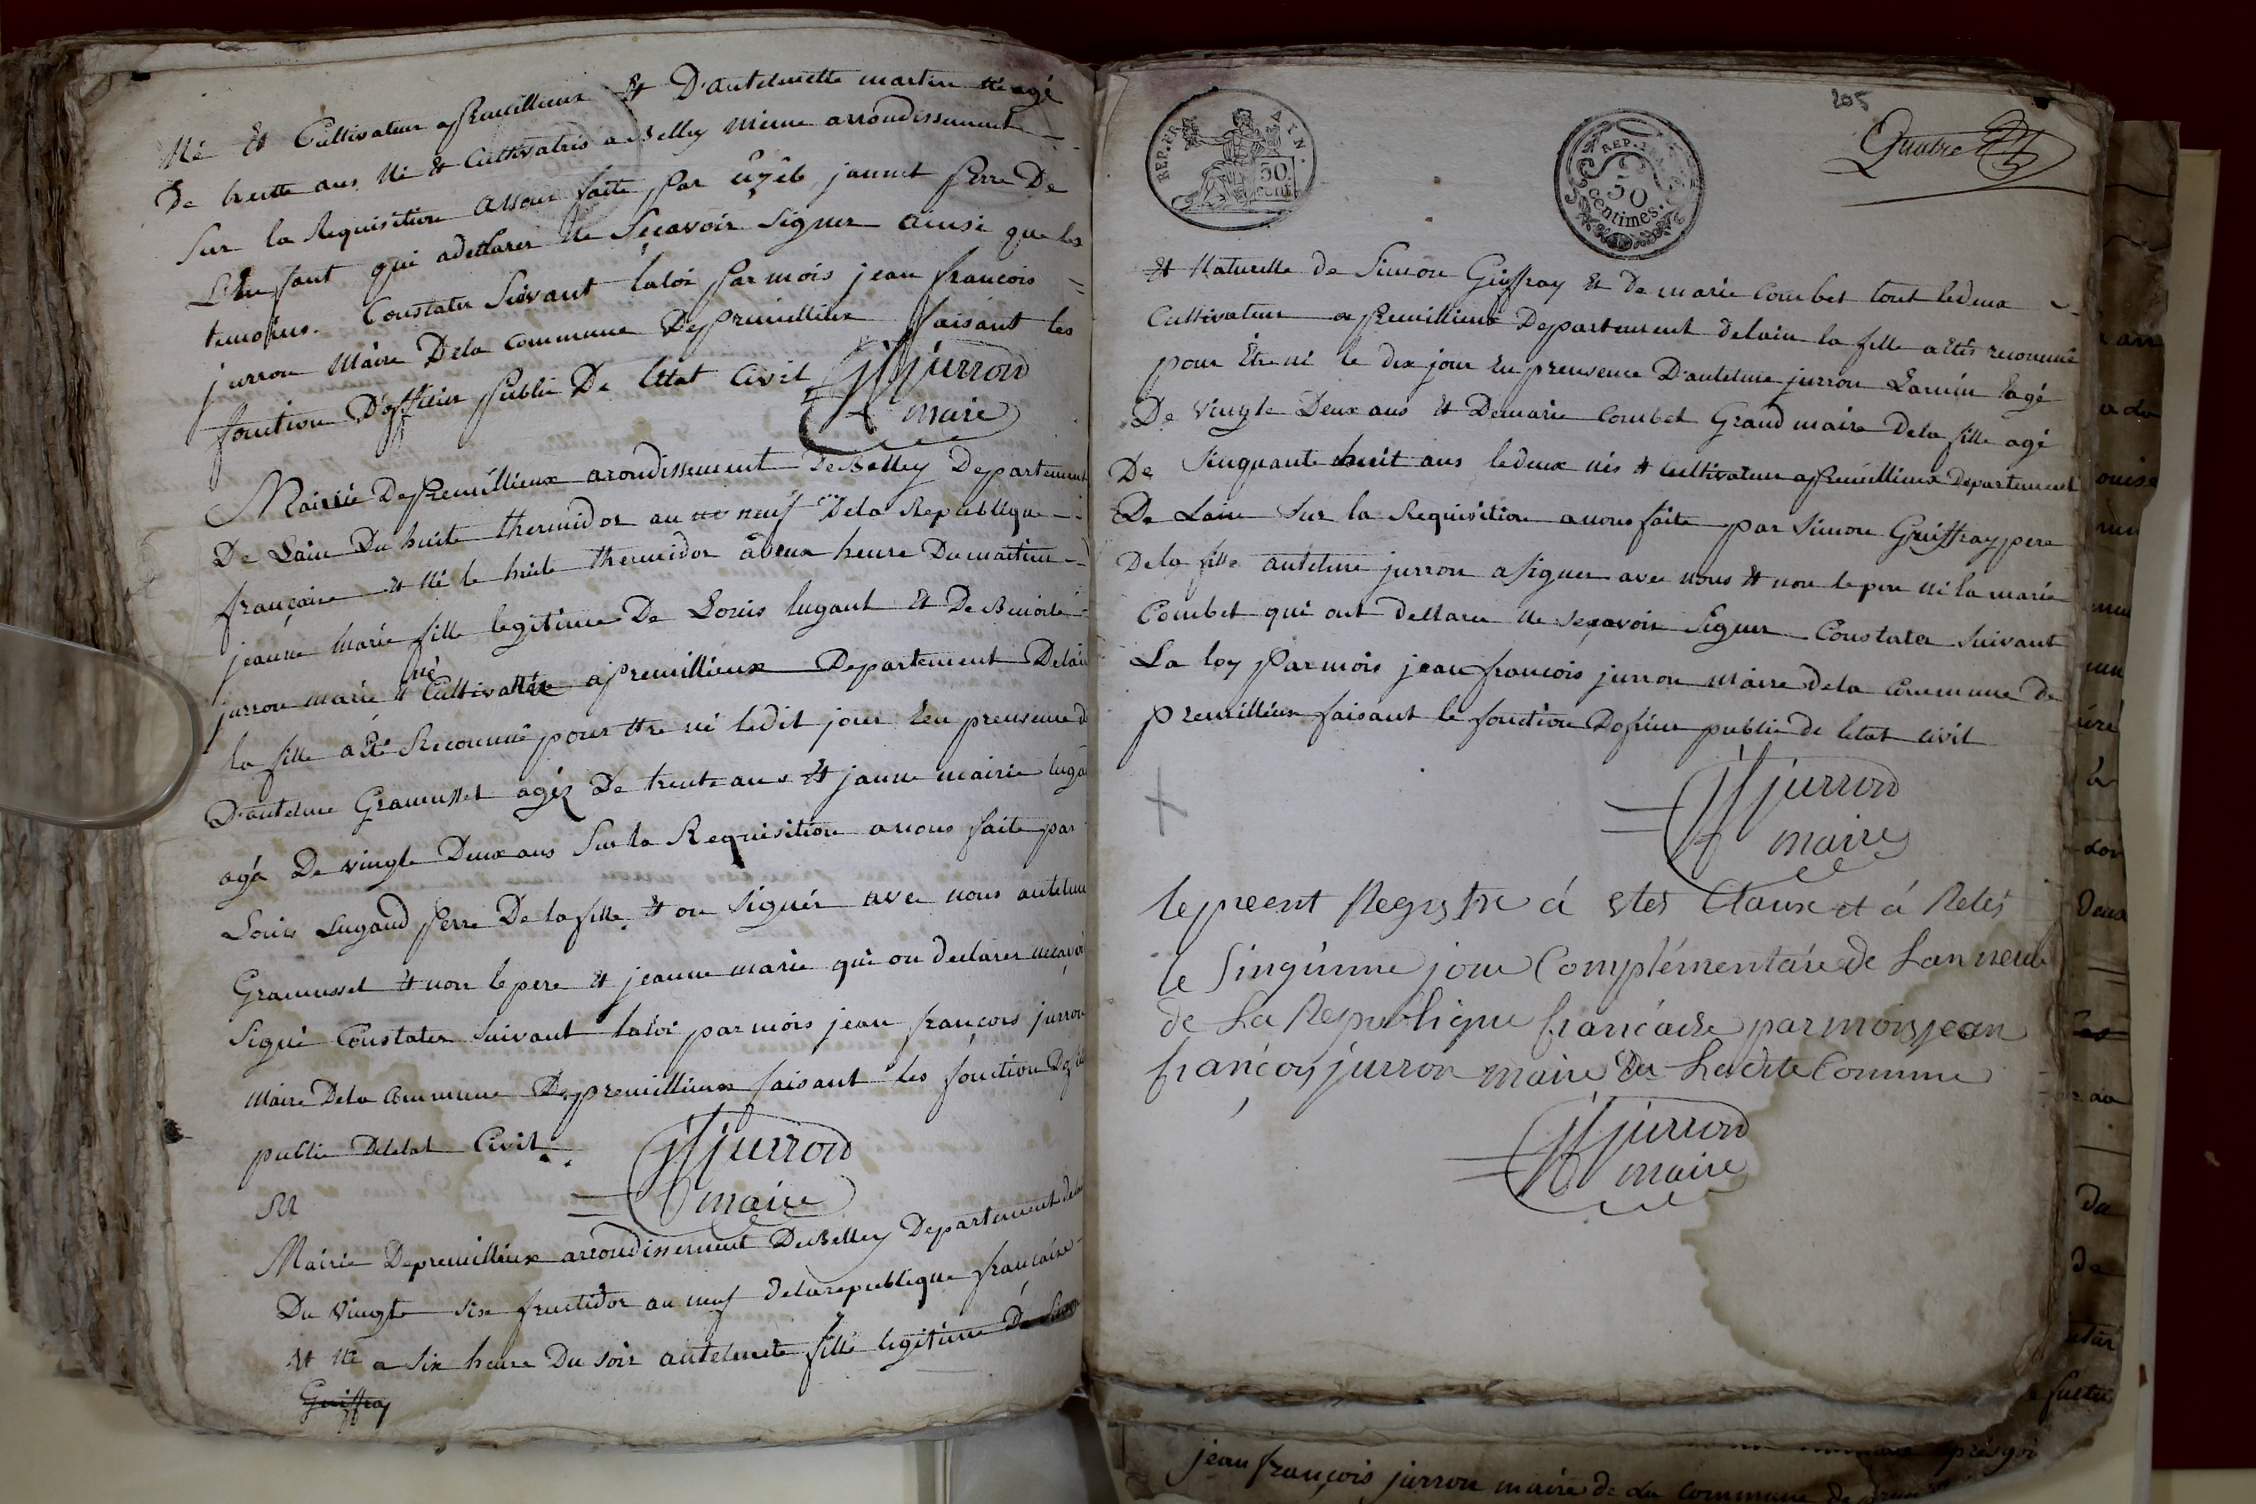 Né et Cultivateur a premillieux et D'antelmette martin né agé
De trente ans Né et Cultivatris a Belley meme arrondissement
Sur la Requisition a nous faite par jannet perre De
L'en fant qui a declarer ne Sçcavoir Signer ainsi que les
temoins. Constater Suivant laloi par mois jean françois
jurron Maire Dela Commune De premillieux faisant les
fonction D'officier Public De létat Civil
jf jurron
maire
Mairie De Premillieux arondissement De Belley Departement
De Lain Du huit thermidor an neuf Dela Republique
françaire et Né le huit thermidor a Deux heure Du matin
jeanne marie fille legitime De Louis lugant et De Benoite
né
jurron marie et Cultivatée a premillieux Departement Delain
la fille a été Reconnue pour ttre né ledit jour En preusence d
D'antelme Gramusset agéz De trente ans et janne mairie luga
agá De vingte Deux ans Sur la Requisition a nous faite par
Louis Lugand perre De la fille et on Signér avec nous antelme
Gramusset et non le pere et jeanne marie qui on declarer
Signé Constater Suivant laloi par mois jean françois jurron
Maire Dela Commune De premillieux faisant les fonction
public De létat Civil
jf jurron
maire
M
Mairie De premillieux arrondissement De Belley Departement
Du vingte six fructidor an neuf dela republique francaire
et né a six heure Du soir antelmete fille legitime De Simon
Guiffray
205
Quatre
REP. FR. AIN.
50. CENT.
REP. FRA
50
Centimes.
et Naturelle de Simon Guiffray et De marie Combet tout ledeux
Cultivateur a premillieux Departement delain la fille a étés reconnue
pour Etre né le dix jour En preusence D'antelme jurron Lamin Eagé
De Vingte Deux ans et De marie Combet Grand maire Dela fille agé
De Sinquante huit ans ledeux nés et Cultivateur a premillieux Departement
De Lain Sur la Requisition a nous faite par Simon Guiffray pere
Dela fille antelme jurron a signer avec nous et non le pere ni la marie
Combet qui ont dellarer ne Seçavoir Signer Constater Suivant
La loy Par mois jean francois jurron maire dela Commune De
premillieux faisant le fonction Doficier public de létat civil
jf jurron
maire
le preent Registre á etes Claux et á Retes
le Singuime jour Complémentaire de Lan neuf
de La Republique francaise par mois jean
françois jurron maire De La dite Comune
jf jurron
maire
jean françois jurron maire de La Commune de